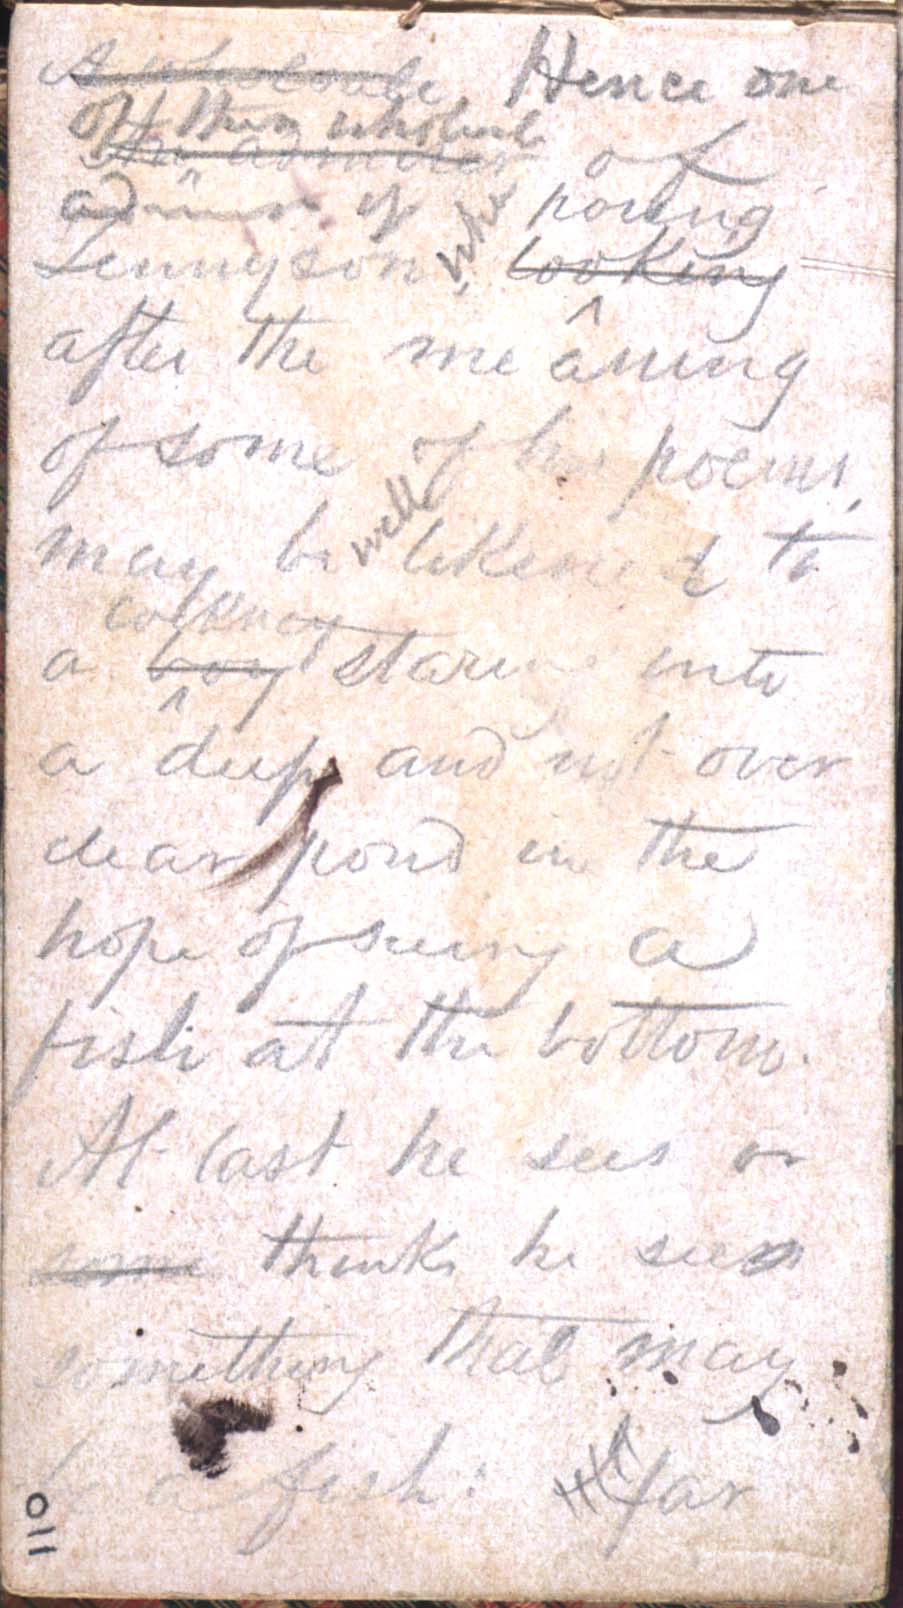 A wholesale Hence one
of them wholesale
an admirer of
admirer of who poring
Tennyson, looking
after the meaning
of some of his poems,
may be well likened to
cockney
a boy staring into
a deep and not over
clear pond in the
hope of seeing a
fish at the bottom.
At last he sees or
some thinks he sees
something that may
be a fish: far
011